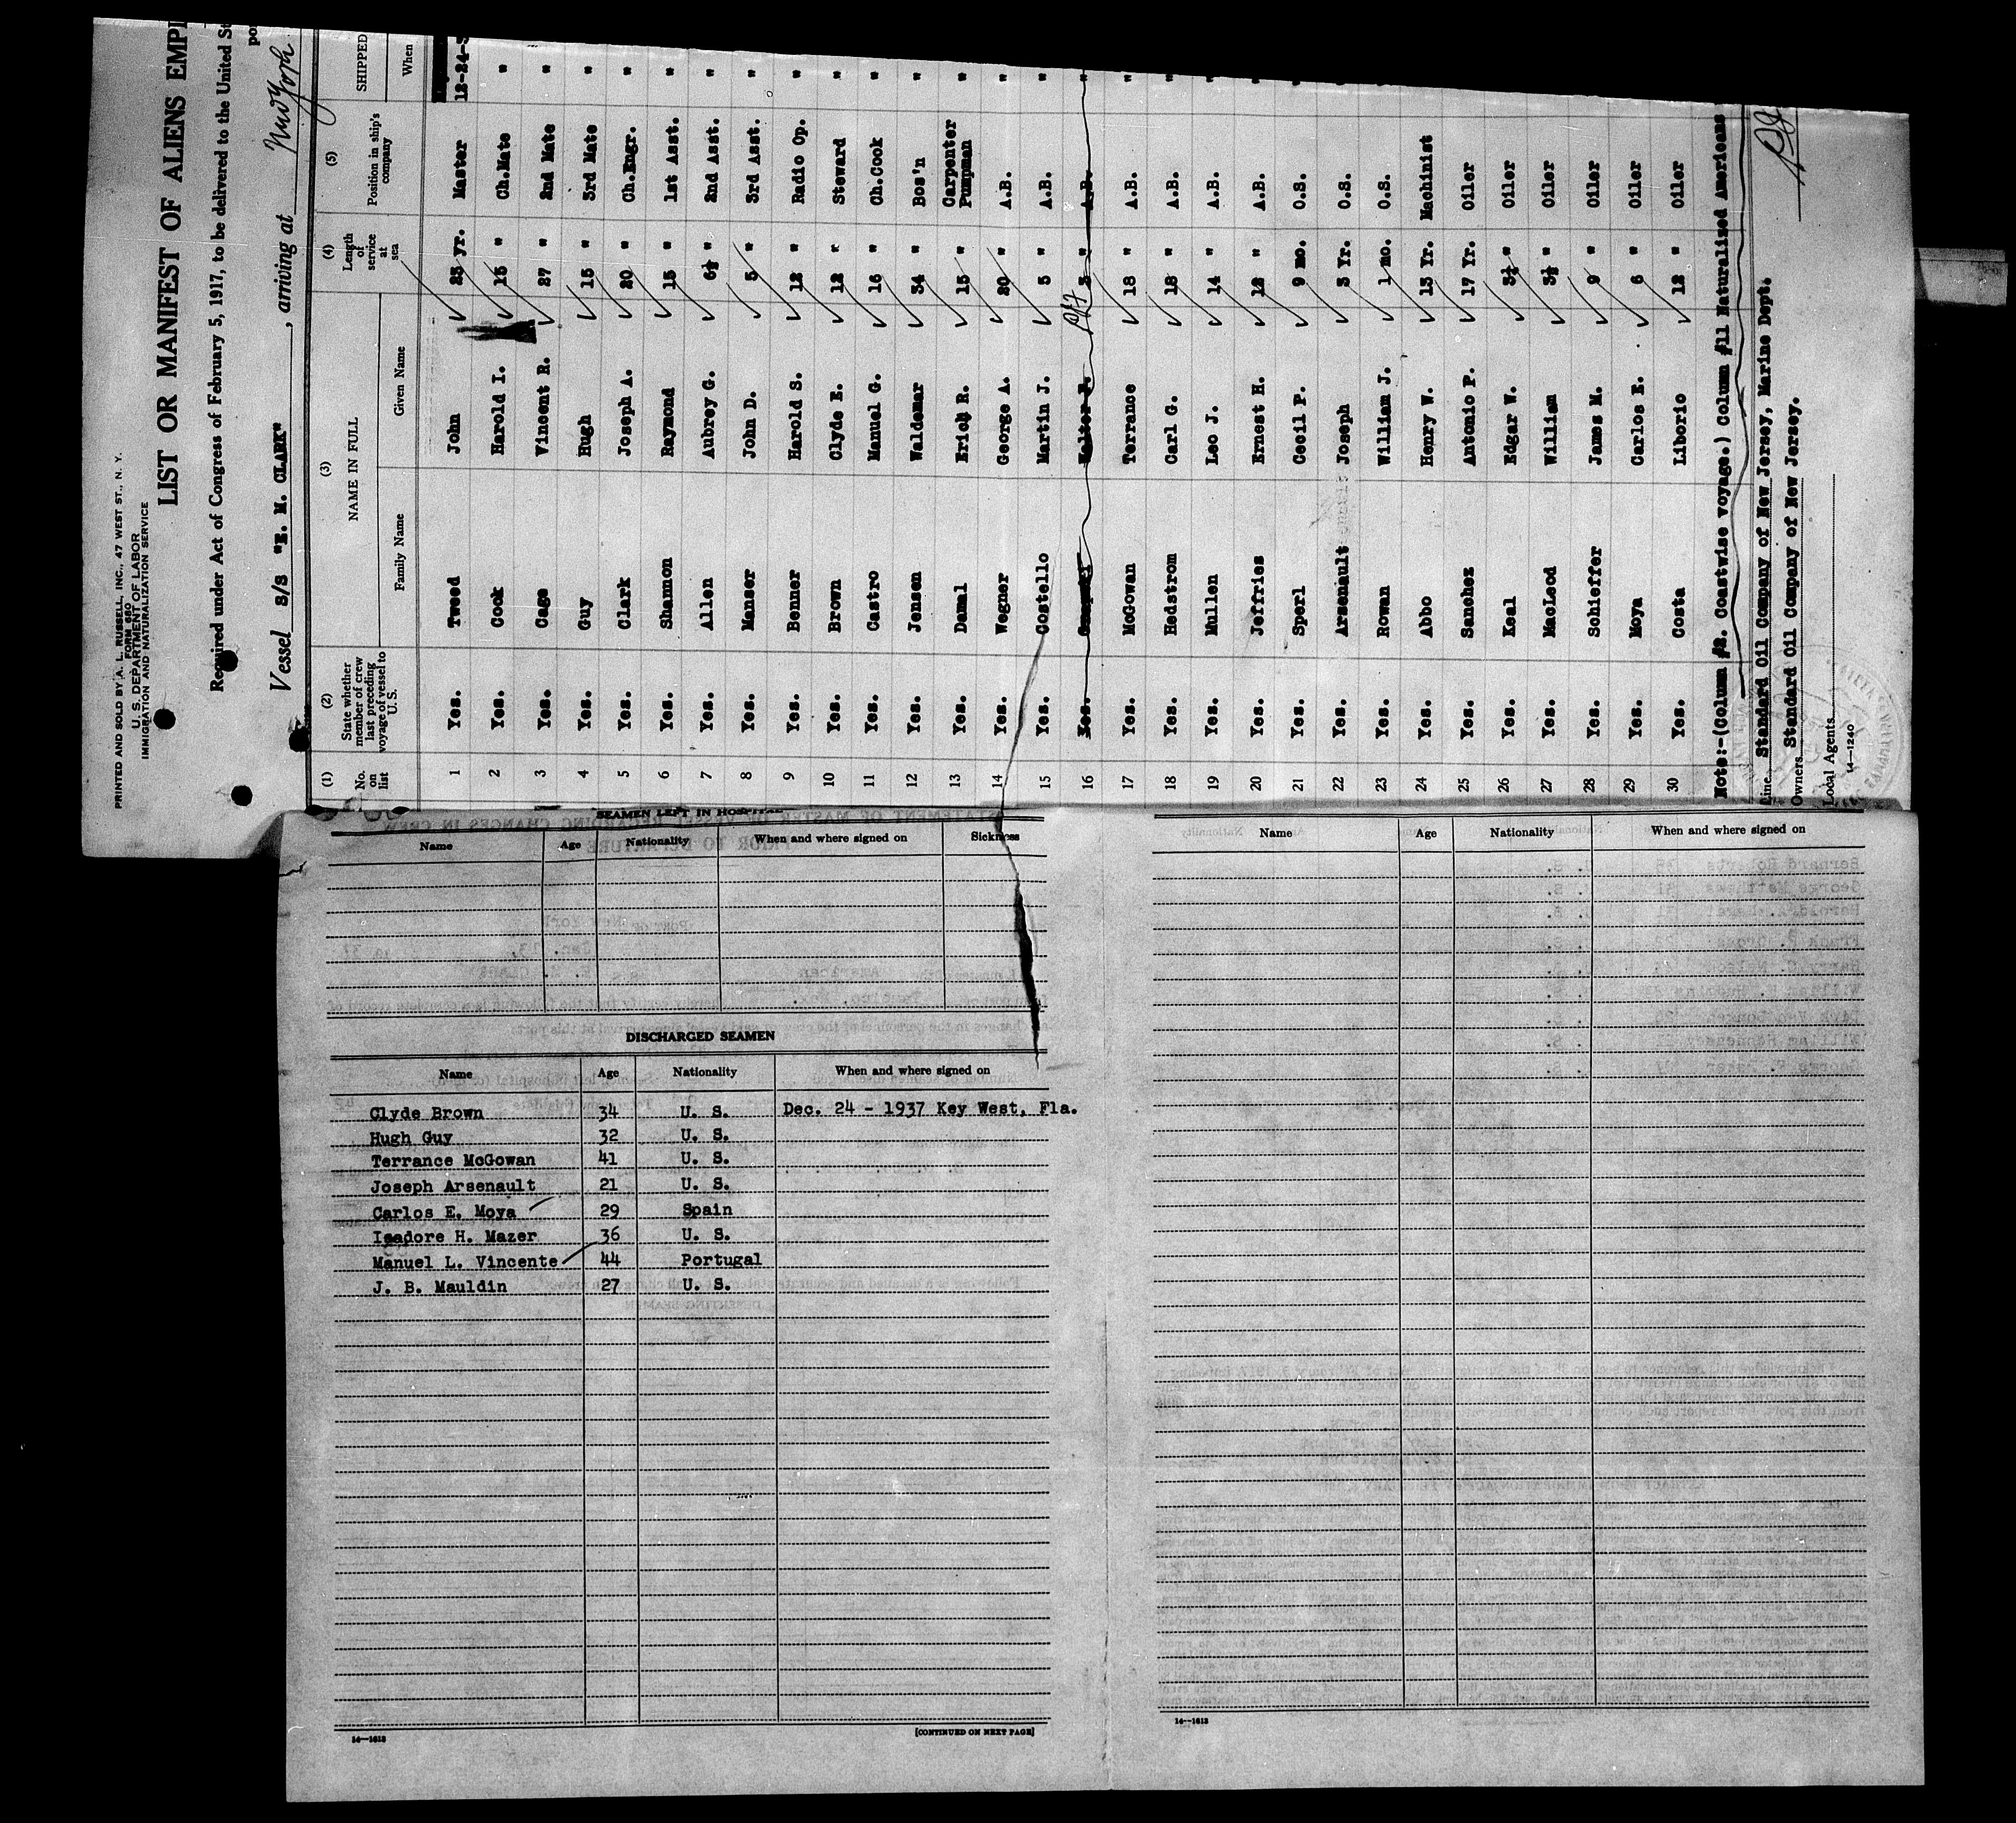 PRINTED AND SOLD BY A. L. RUSSELL, INC., 47 WEST ST., N. Y.
FORM 680
U. S. DEPARTMENT OF LABOR
IMMIGRATION AND NATURALIZATION SERVICE
LIST OR MANIFEST OF ALIENS EMPL
Required under Act of Congress of February 5, 1917, to be delivered to the United St
po
Vessel S/S "E. M. CLARK", arriving at New York
(1) (2) (3) (4) (5) SHIPPED
No. on list State whether member of crew last preceding voyage of vessel to U. S. NAME IN FULL Length of service at sea Position in ship's company When
Family Name Given Name
1 Yes. Tweed John 23 yr. Master 12-24-3
2 Yes. Cook Harold I. 15 " Ch.Mate "
3 Yes. Cage Vincent R. 27 " 2nd Mate "
4 Yes. Guy Hugh 15 " 3rd Mate "
5 Yes. Clark Joseph A. 20 " Ch.Engr. "
6 Yes. Shannon Raymond 15 " 1st Asst. "
7 Yes. Allen Aubrey G. 6½ " 2nd Asst. "
8 Yes. Manser John D. 5 " 3rd Asst. "
9 Yes. Benner Harold S. 12 " Radio Op. "
10 Yes. Brown Clyde E. 12 " Steward "
11 Yes. Castro Manuel G. 16 " Ch.Cook "
12 Yes. Jensen Waldemar 34 " Bos'n "
13 Yes. Damal Erick R. 15 " Carpenter Pumpman "
14 Yes. Wegner George A. 20 " A.B. "
15 Yes. Costello Martin J. 5 " A.B. "
16 Yes. Walter P. 3 " A.B. "
17 Yes. McGowan Terrance 18 " A.B. "
18 Yes. Hedstrom Carl G. 18 " A.B. "
19 Yes. Mullen Leo J. 14 " A.B. "
20 Yes. Jeffries Ernest H. 12 " A.B. "
21 Yes. Sperl Cecil P. 9 mo. O.S. "
22 Yes. Arsenault Joseph 3 Yr. O.S. "
23 Yes. Rowan William J. 1 mo. O.S. "
24 Yes. Abbo Henry W. 13 Yr. Machinist
25 Yes. Sanchez Antonio P. 17 Yr. Oiler
26 Yes. Keal Edgar W. 3½ " Oiler
27 Yes. MacLeod William 3½ " Oiler
28 Yes. Schieffer James M. 9 " Oiler
29 Yes. Moya Carlos E. 6 " Oiler
30 Yes. Costa Liborio 12 " Oiler
Note:-(Column #2. Coastwise voyage.) Column #11 Naturalized Americans
Line Standard Oil Company of New Jersey, Marine Dept.
Owners Standard Oil Company of New Jersey.
Local Agents
14—1240
SEAMEN LEFT IN HOSPITAL
Name Age Nationality When and where signed on Sickness
DISCHARGED SEAMEN
Name Age Nationality When and where signed on
Clyde Brown 34 U. S. Dec. 24 - 1937 Key West, Fla.
Hugh Guy 32 U. S.
Terrance McGowan 41 U. S.
Joseph Arsenault 21 U. S.
Carlos E. Moya 29 Spain
Isadore H. Mazer 36 U. S.
Manuel L. Vincente 44 Portugal
J. B. Mauldin 27 U. S.
14—1613
[CONTINUED ON NEXT PAGE]
Name Age Nationality When and where signed on
14—1613